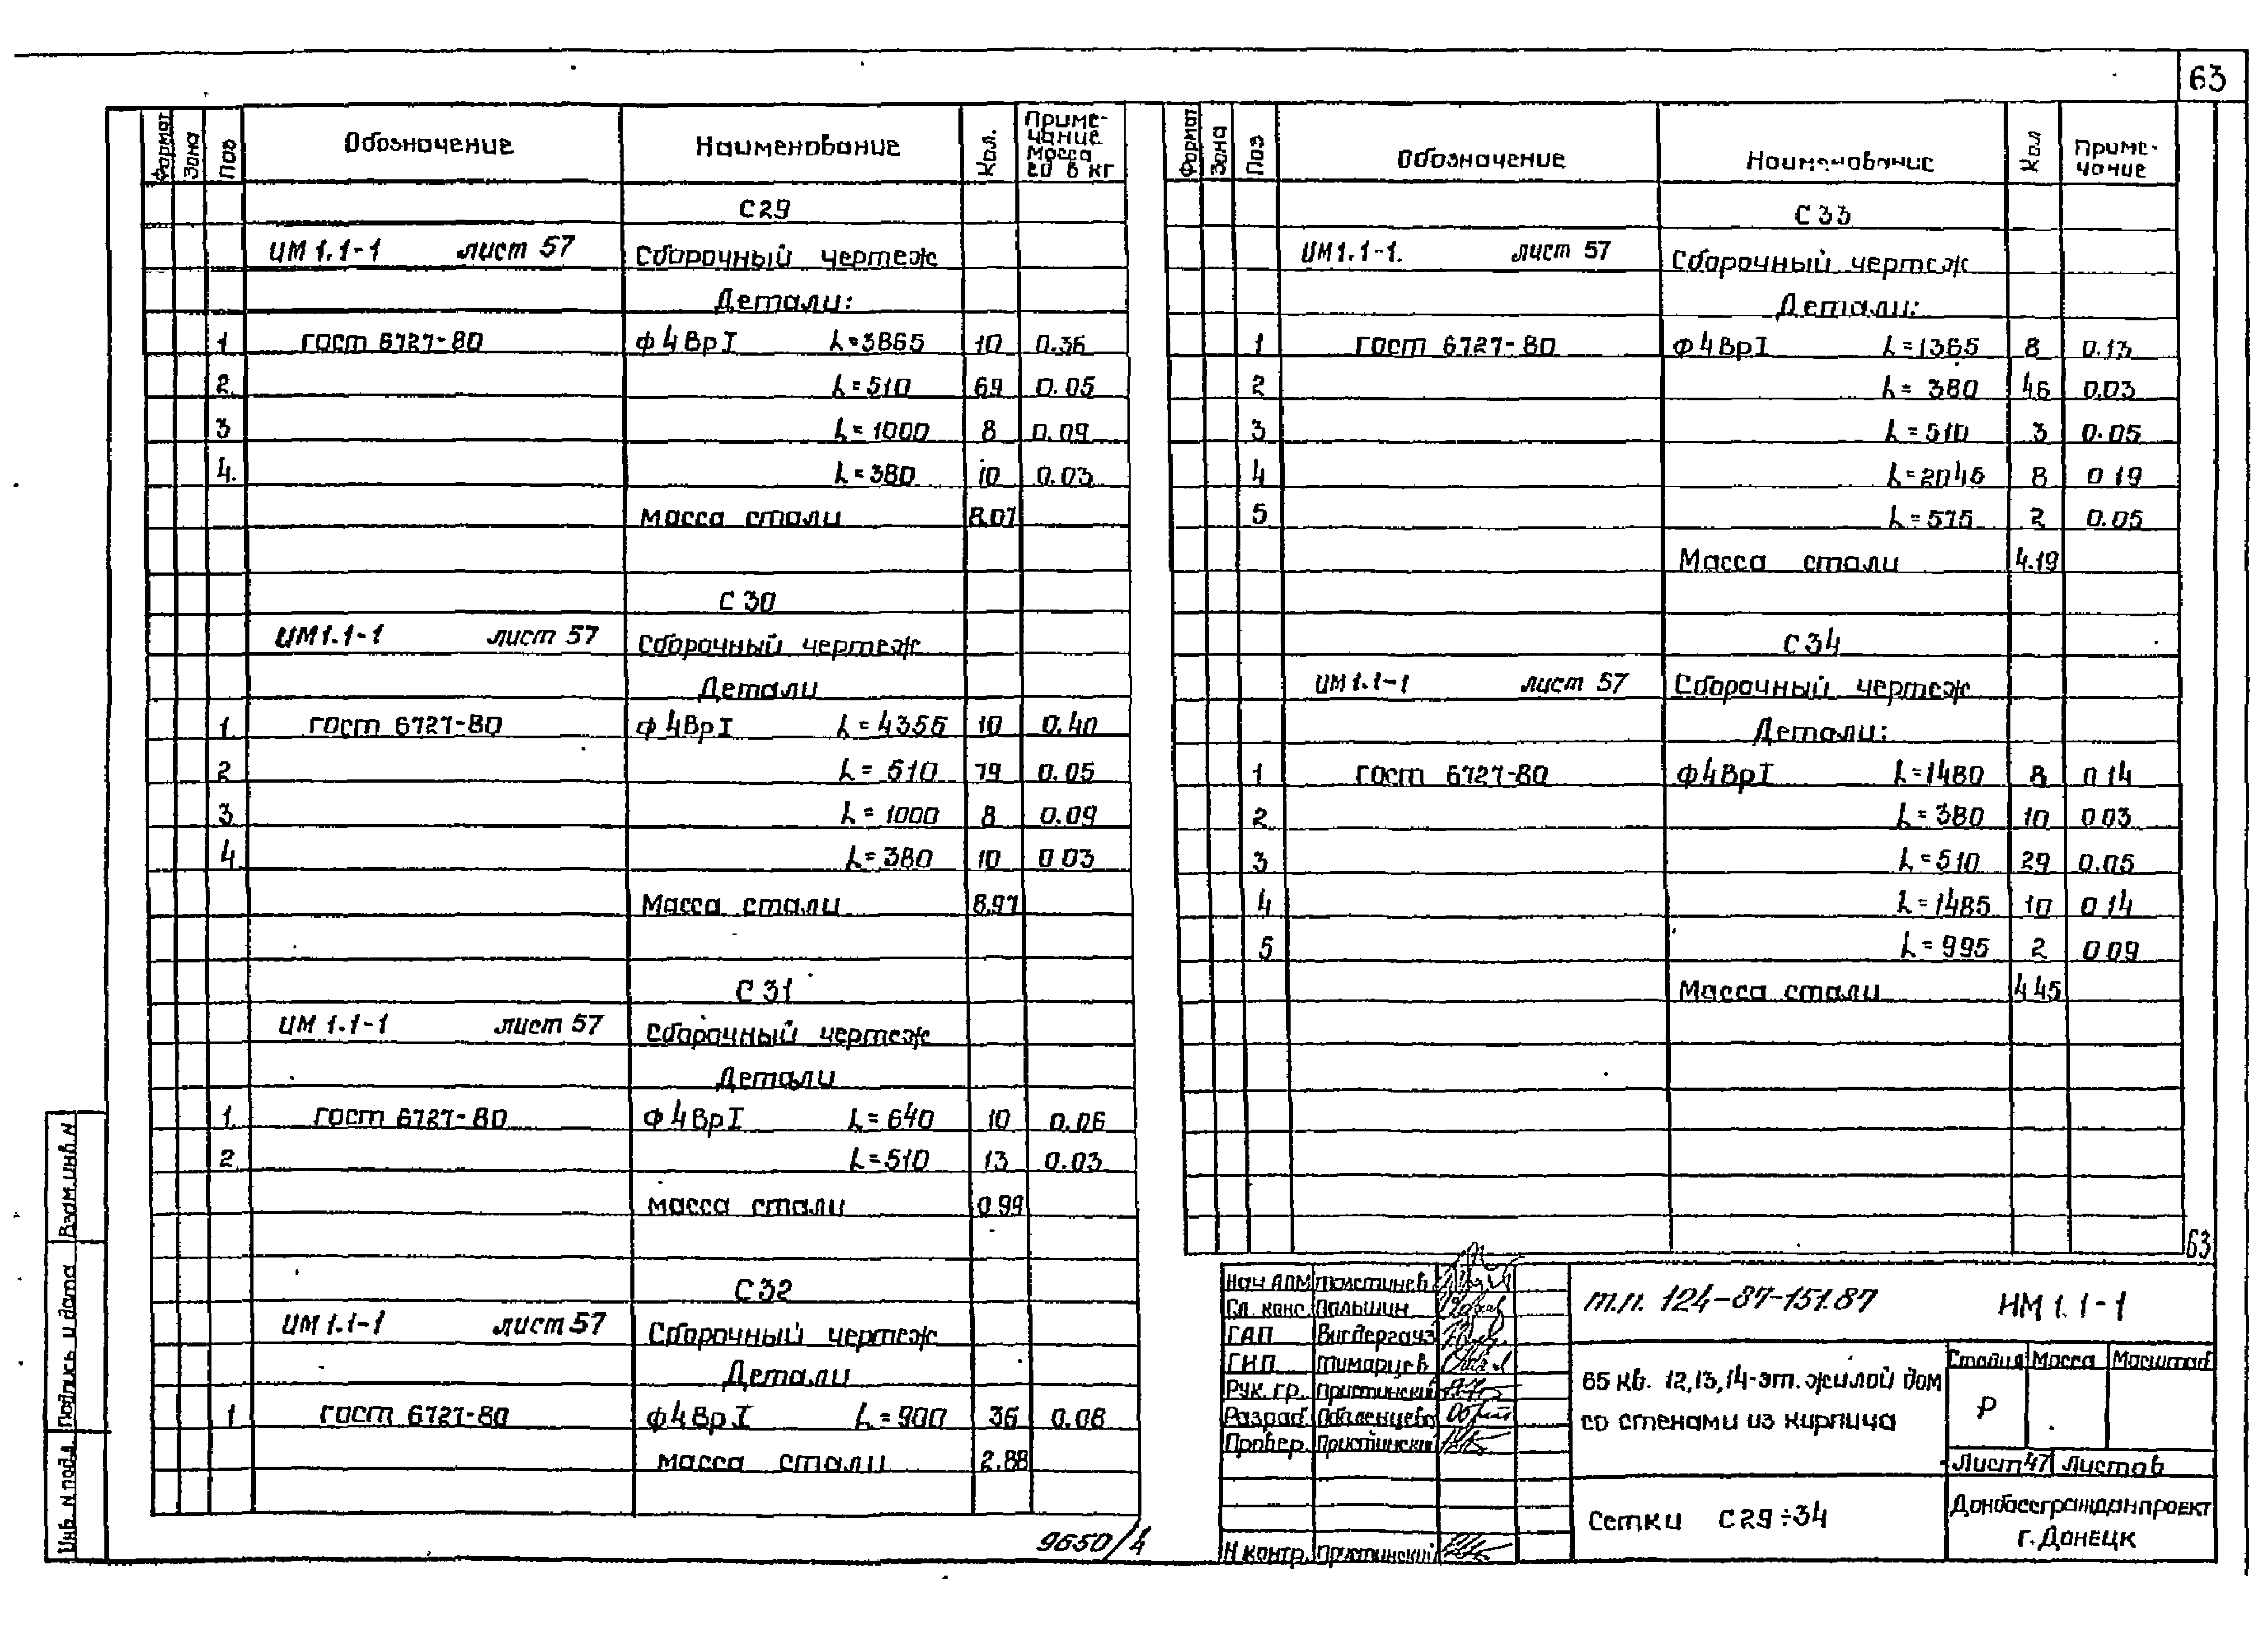 63
Формат Зона Поз Обозначение Наименование Кол. Приме-
чание
Масса
ед в кг
С29
ИМ 1.1-1 лист 57 Сборочный чертеж
Детали:
1 ГОСТ 6727-80 ф4ВрI L=3865 10 0.36
2. L=510 69 0.05
3 L=1000 8 0.09
4. L=380 10 0.03
Масса стали 8.07
С30
ИМ1.1-1 лист 57 Сборочный чертеж
Детали
1. ГОСТ 6727-80 ф4ВрI L=4355 10 0.40
2 L=510 79 0.05
3. L=1000 8 0.09
4. L=380 10 0 03
Масса стали 8.97
С31
ИМ 1.1-1 лист 57 Сборочный чертеж
Детали
1. ГОСТ 6727-80 ф4ВрI L=640 10 0.06
2. L=510 13 0.03
масса стали 0 99
С32
ИМ 1.1-1 лист 57 Сборочный чертеж
Детали
1 ГОСТ 6727-80 ф4ВрI L=900 36 0.08
масса стали 2.88
9650/4
Формат Зона Поз Обозначение Наименование Кол Приме-
чание
С33
ИМ1.1-1. лист 57 Сборочный чертеж
Детали:
1 ГОСТ 6727-80 ф4ВрI L=1365 8 0.13
2 L=380 46 0.03
3 L=510 3 0.05
4 L=2045 8 0 19
5 L=575 2 0.05
Масса стали 4.19
С34
ИМ1.1-1 лист 57 Сборочный чертеж
Детали:
1 ГОСТ 6727-80 ф4ВрI L=1480 8 0 14
2 L=380 10 0 03
3 L=510 29 0.05
4 L=1485 10 0 14
5 L=995 2 0 09
Масса стали 4 45
63
Инв. N подл. Подпись и дата Взам.инв.N
Нач АПМ Толстичев
Гл. конс. Пальшин
ГАП Вигдергауз
ГИП Тимарцев
Рук. гр. Пристинский
Разраб.
Провер. Пристинский
Н контр. Пристинский
т.п. 124-87-151.87 ИМ 1.1-1
65 кв. 12,13,14-эт. жилой дом
со стенами из кирпича
Стадия Масса Масштаб
Р
Лист 47 Листов
Сетки С29÷34
Донбассгражданпроект
г. Донецк